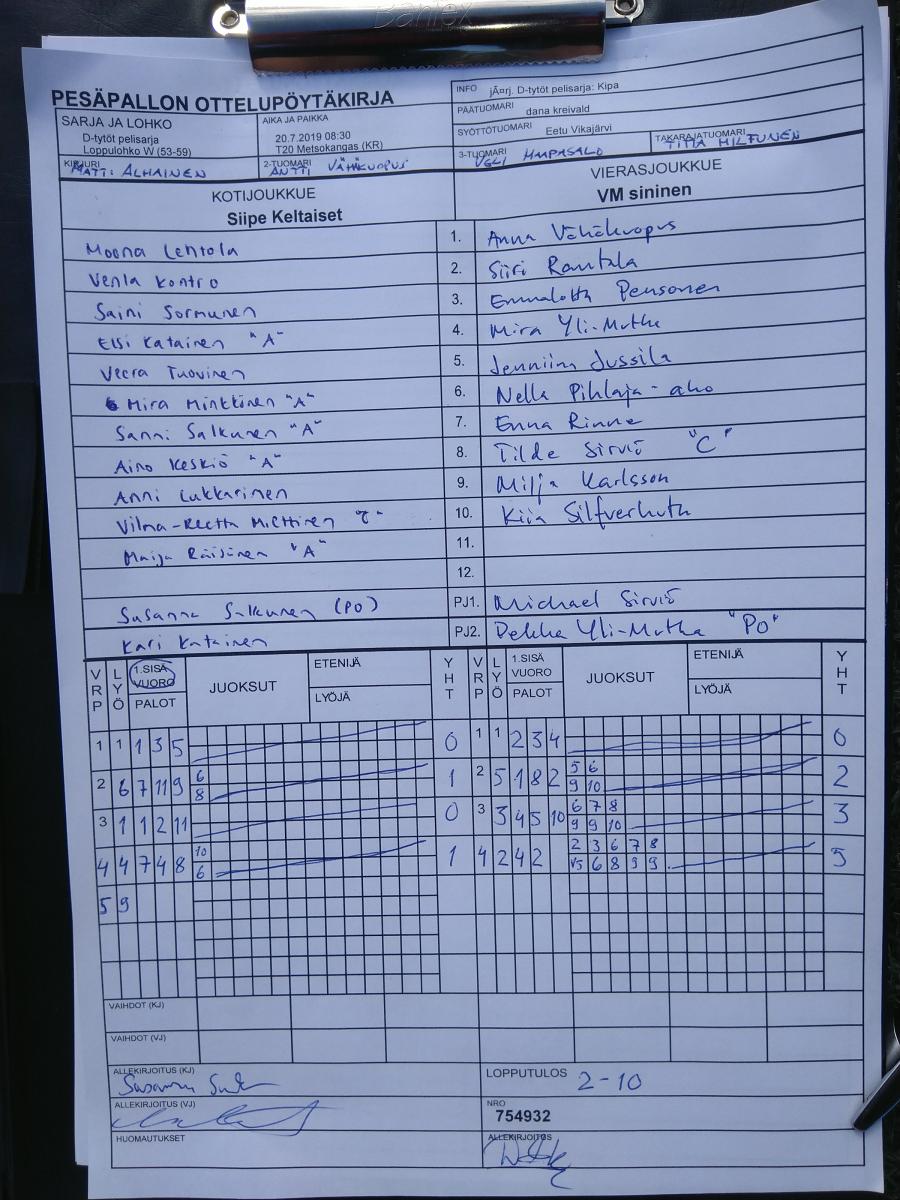 Bantex
PESÄPALLON OTTELUPÖYTÄKIRJA
INFO jÃ¤rj. D-tytöt pelisarja: Kipa
PÄÄTUOMARI dana kreivald
SARJA JA LOHKO
D-tytöt pelisarja
Loppulohko W (53-59)
AIKA JA PAIKKA
20.7.2019 08:30
T20 Metsokangas (KR)
SYÖTTÖTUOMARI Eetu Vikajärvi
KIRJURI MATTI ALHAINEN
2-TUOMARI ANTTI VÄHÄKUOPUS
3-TUOMARI HAAPASALO
TAKARAJATUOMARI HILTUNEN
KOTIJOUKKUE
Siipe Keltaiset
VIERASJOUKKUE
VM sininen
Moona Lehtola 1. Anna Vähäkuopus
Venla Kontro 2. Siiri Rantala
Saini Sormunen 3. Emmalotta Pensonen
Elsi Katainen "A" 4. Mira Yli-Mutka
Veera Tuovinen 5. Jenniina Jussila
Mira Minkkinen "A" 6. Nella Pihlaja-aho
Sanni Salkunen "A" 7. Enna Rinne
Aino Keskiö "A" 8. Tilde Sirviö "C"
Anni Lukkarinen 9. Milja Karlsson
Vilma-Reetta Miettinen "C" 10. Kiia Silfverhuth
Maija Räisänen "A" 11.
12.
Susanna Salkunen (PO) PJ1. Michael Sirviö
Kari Katainen PJ2. Pekka Yli-Mutka "PO"
VRP LYÖ 1.SISÄ VUORO PALOT JUOKSUT ETENIJÄ LYÖJÄ YHT VRP LYÖ 1.SISÄ VUORO PALOT JUOKSUT ETENIJÄ LYÖJÄ YHT
1 1 1 3 5 0 1 1 2 3 4 0
6 5 6
2 6 7 11 9 1 2 5 1 8 2 2
8 9 10
6 7 8
3 1 1 2 11 0 3 3 4 5 10 3
9 9 10
10 2 3 6 7 8
4 4 7 4 8 1 4 2 4 2 5
6 5 6 8 9 9
5 9
VAIHDOT (KJ)
VAIHDOT (VJ)
ALLEKIRJOITUS (KJ) Susanna
LOPPUTULOS 2-10
ALLEKIRJOITUS (VJ)
NRO
754932
HUOMAUTUKSET
ALLEKIRJOITUS